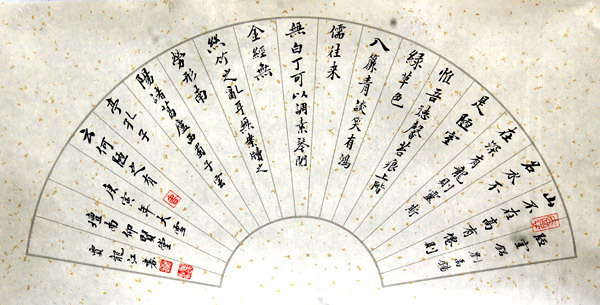 陋室銘劉禹錫
山不在高有僊則
名水不
在深有龍則靈斯
是陋室
惟吾德馨苔痕上階
綠草色
入簾青談笑有鴻
儒往來
無白丁可以調素琴閱
金經無
絲竹之亂耳無案牘之
勞形南
陽諸葛廬西蜀子雲
亭孔子
云何陋之有
庚寅年大雪
壇南仰賢堂
賈龍江書